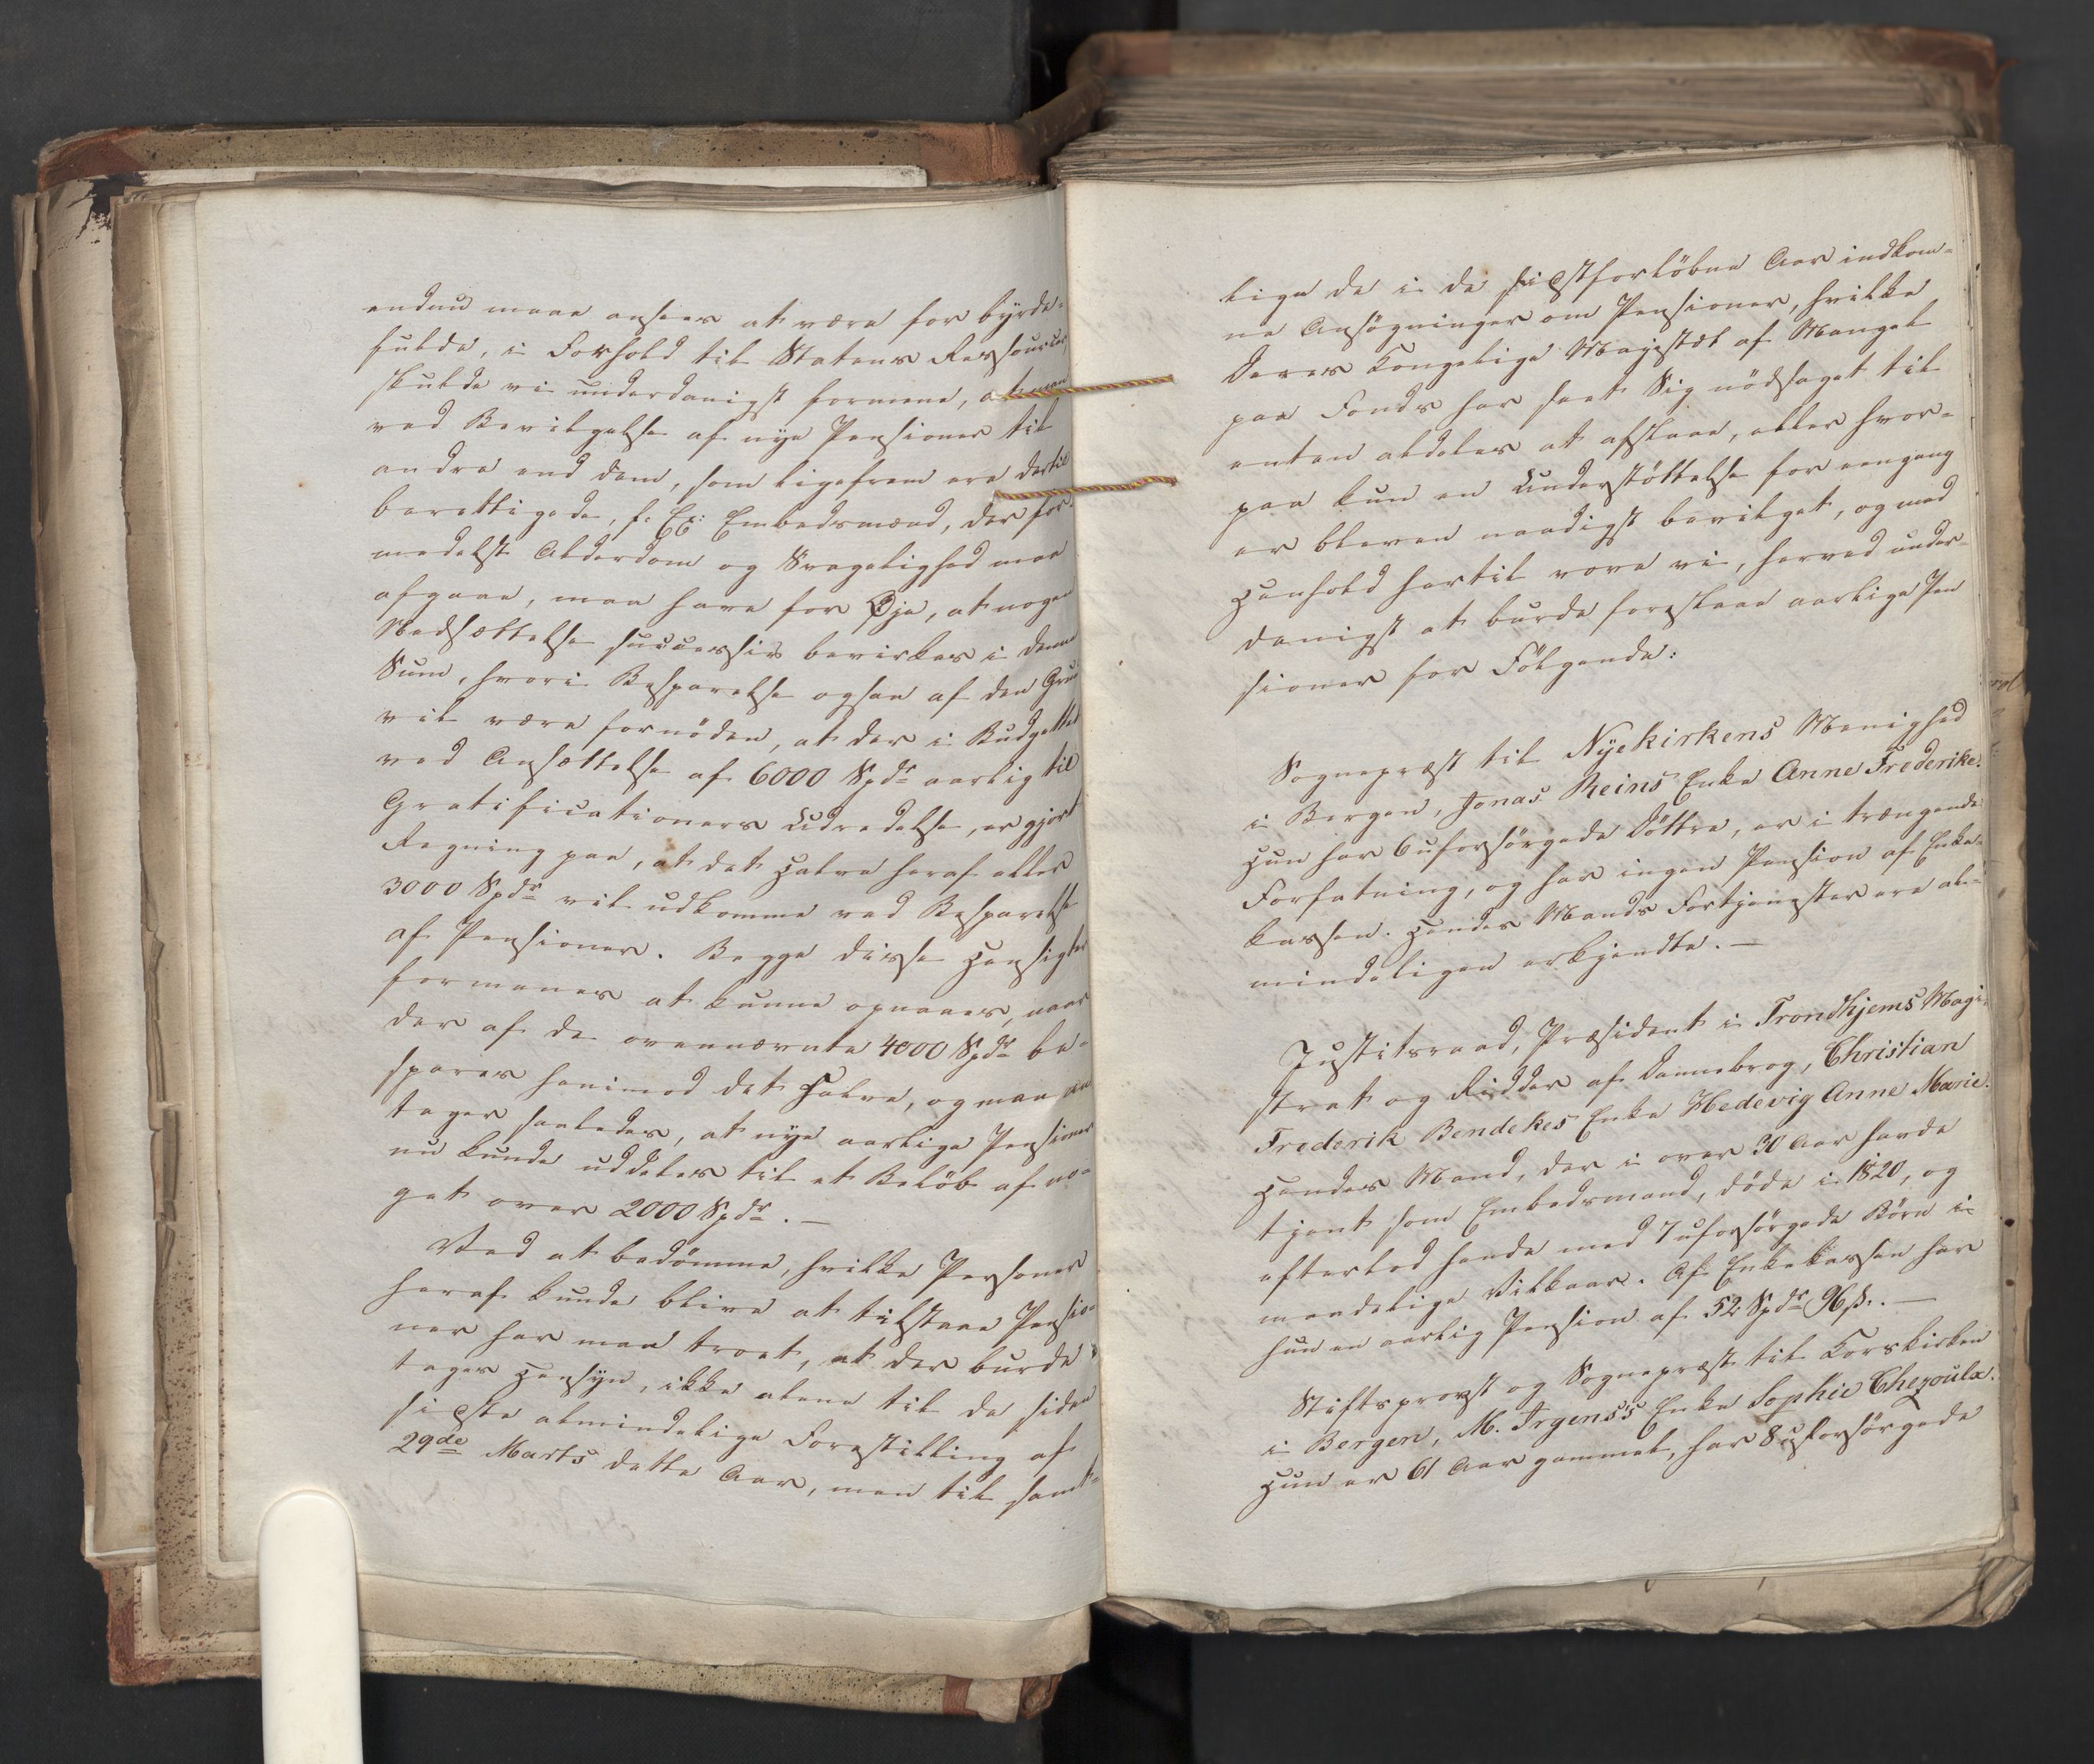 endnu maae ansees at være for byrde-
fulde, i Forhold til Statens Ressourcer,
skulde vi underdanigst formene, at man
ved Bevilgelse af nye Pensioner til
andre end dem, som ligefrem ere dertil
berettigede, f. Ex: Embedsmænd, der for-
medelst Alderdom og Svagelighed maa
afgaae, maa have for Øje, at nogen
Nedsættelse successiv bevirkes i denne
Sum, hvori Besparelse ogsaa af den Grund
vil være fornøden, at der i Budgettet
ved Ansættelse af 6000 Spdr aarlig til
Gratificationers Udredelse, er gjort
Regning paa, at det Halve heraf eller
3000 Spdr vil udkomme ved Besparelse
af Pensioner. Begge disse Hensigter
formenes at kunne opnaaes, naar
der af de ovennævnte 4000 Spdr be-
spares henimod det Halve, og man an
tager saaledes, at nye aarlige Pensioner
nu kunde uddeles til et Beløb af no-
get over 2000 Spdr. —
Ved at bedømme, hvilke Personer
heraf kunde blive at tilstaae Pensio-
ner har man troet, at der burde
tages Hensyn, ikke alene til de siden
sidste almindelige Forestilling af
29de Marts dette Aar, men til samt-
lige de i de sidstforløbne Aar indkom-
ne Ansøgninger om Pensioner, hvilke
Deres Kongelige Majestæt af Mangel
paa Fonds har seet Sig nødsaget til
enten aldeles at afslaae, eller hvor-
paa kun en Understøttelse for eengang
er bleven naadigst bevilget, og med
Henhold hertil vove vi, herved under-
danigst at burde foreslaae aarlige Pen
sioner for Følgende:
Sognepræst til Nyekirkens Menighed
i Bergen, Jonas Reins Enke Anne Frederike.
Hun har 6 uforsørgede Døttre, er i trængende
Forfatning, og har ingen Pension af Enke-
kassen. Hendes Mands Fortjenester ere al-
mindeligen erkjendte. —
Justitsraad, Præsident i Trondhjems Magi-
strat og Ridder af Dannebrog, Christian
Frederik Bendekes Enke Hedevig Anne Marie.
Hendes Mand, der i over 30 Aar havde
tjent som Embedsmand, døde i 1820, og
efterlod hende med 7 uforsørgede Børn i
maadelige Vilkaar. Af Enkekassen har
hun en aarlig Pension af 52 Spdr 96 ß. —
Stiftsprovst og Sognepræst til Korskirken
i Bergen, M. Irgens's Enke Sophie Chezoulx.
Hun er 61 Aar gammel, har 8 uforsørgede